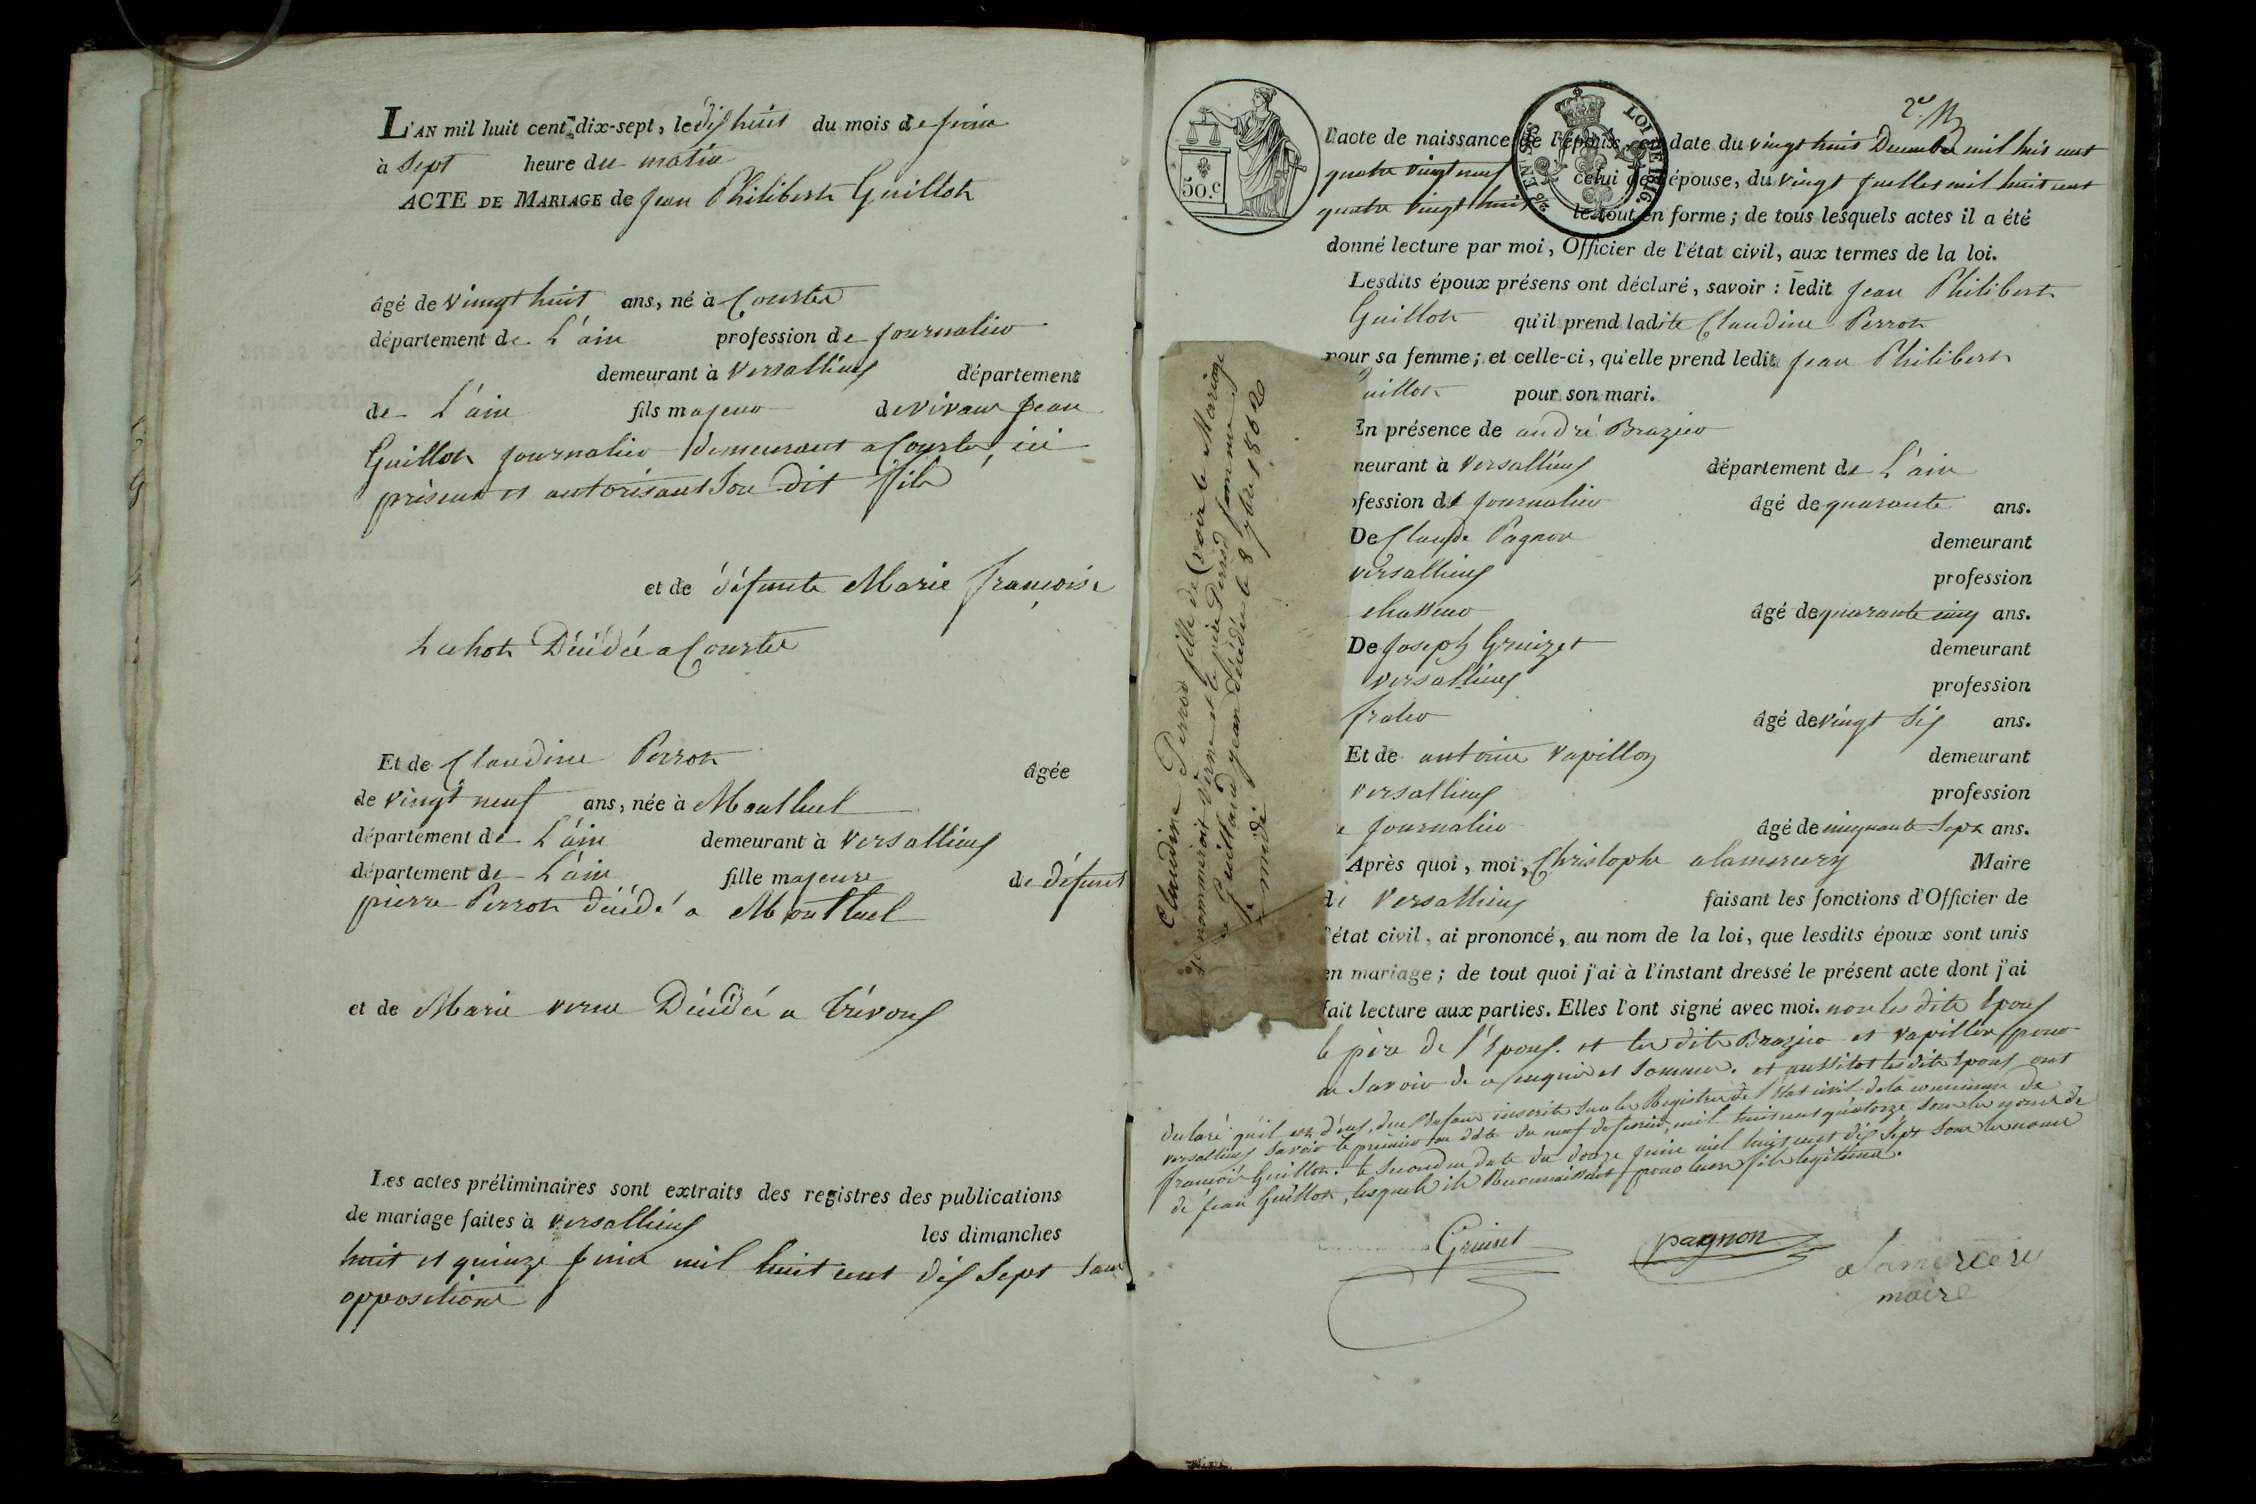 L'AN mil huit cent dix-sept, le dix huit du mois de juin
à sept heure du matin
ACTE DE MARIAGE de jean Philibert Guillot
âgé de vingt huit ans, né à Courtes
département de L'ain profession de journalier
demeurant à Versallieux département
de L'ain fils majeur de vivant jean
Guillot journalier demeurant a Courtes, ici
présent et autorisant son dit fils
et de défunte Marie françoise
Décédée a Courtes
Et de Claudine Perrot âgée
de vingt neuf ans, née à Montluel
département de L'ain demeurant à Versallieux
département de L'ain fille majeure de défunt
pierre Perrot décédé a Montluel
et de Marie verne Décédée a trévoux
Les actes préliminaires sont extraits des registres des publications
de mariage faites à versallieux les dimanches
huit et quinze juin mil huit cent dix sept sans
oppositions
L'acte de naissance de l'époux, en date du vingt huit Décembre mil huit cent
quatre vingt neuf celui de l'épouse, du vingt juillet mil huit cent
quatre vingt huit le tout en forme; de tous lesquels actes il a été
donné lecture par moi, Officier de l'état civil, aux termes de la loi.
Lesdits époux présens ont déclaré, savoir : ledit jean Philibert
Guillot qu'il prend ladite Claudine Perrot
pour sa femme; et celle-ci, qu'elle prend ledit jean Philibert
uillot pour son mari.
En présence de andré Brazier
meurant à versallieux département de L'ain
ofession de journalier âgé de quarante ans.
De Claude Pagnon demeurant
versallieux profession
chasseur âgé de quarante cinq ans.
De joseph Gruizet demeurant
versallieux profession
frater âgé de vingt six ans.
Et de antoine vapillon demeurant
versallieux profession
journalier âgé de cinquante sept ans.
Après quoi, moi, Christophe alamercery Maire
de Versallieux faisant les fonctions d'Officier de
l'état civil, ai prononcé, au nom de la loi, que lesdits époux sont unis
en mariage; de tout quoi j'ai à l'instant dressé le présent acte dont j'ai
fait lecture aux parties. Elles l'ont signé avec moi. non les dits Epoux
le père de l'Epoux. et les dits Brazier et vapillon pour
ne savoir de ce enquis et sommés. et aussitot les dits Epoux ont
declaré qu'il est d'eux deux Enfans inscrits sur les Registres de l'état civil de la commune de
versallieux savoir le premier en date du neuf de mil huit cent quatorze sous les noms de
françois Guillot. le second en date du douze juin mil huit cent dix sept sous les noms
de jean Guillot, lesquels ils Reconnaissent pour leurs fils legitimes.
Gruiset
pagnon
alamercery
maire
50.c
LOI DE 1816.
Claudine Perrot fille de (voir le Mariage
se nommeroit Verne et le père Perrod femme
de Guillaud jean décédée le 8 1862
à midi